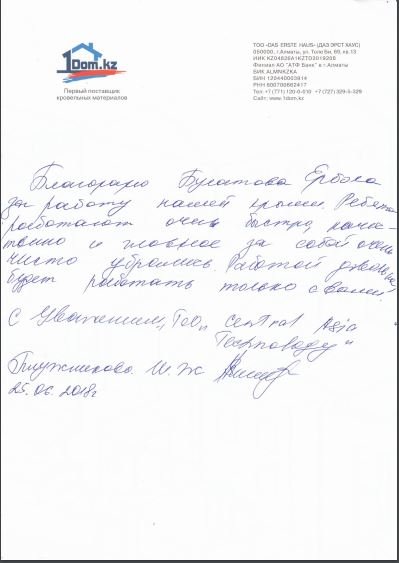 1Dom.kz
Первый поставщик
кровельных материалов
ТОО «DAS ERSTE HAUS» (ДАЗ ЭРСТ ХАУС)
050000, г.Алматы, ул. Толе Би, 69, кв.13
Филиал АО "АТФ Банк" в г.Алматы
БИК ALMNKZKA
БИН 120440003814
РНН 600700662417
Сайт: www.1dom.kz
Благодарю Бусатова Ербола
за работу нашей крыши. Ребята
работают очень быстро, качест-
венно и главное за собой очень
чисто убрались. Работой довольны
будет работать только с вами!
С Уважением, ТОО „Central Asia
Technology"
Ш. Ж
25.06.2018г